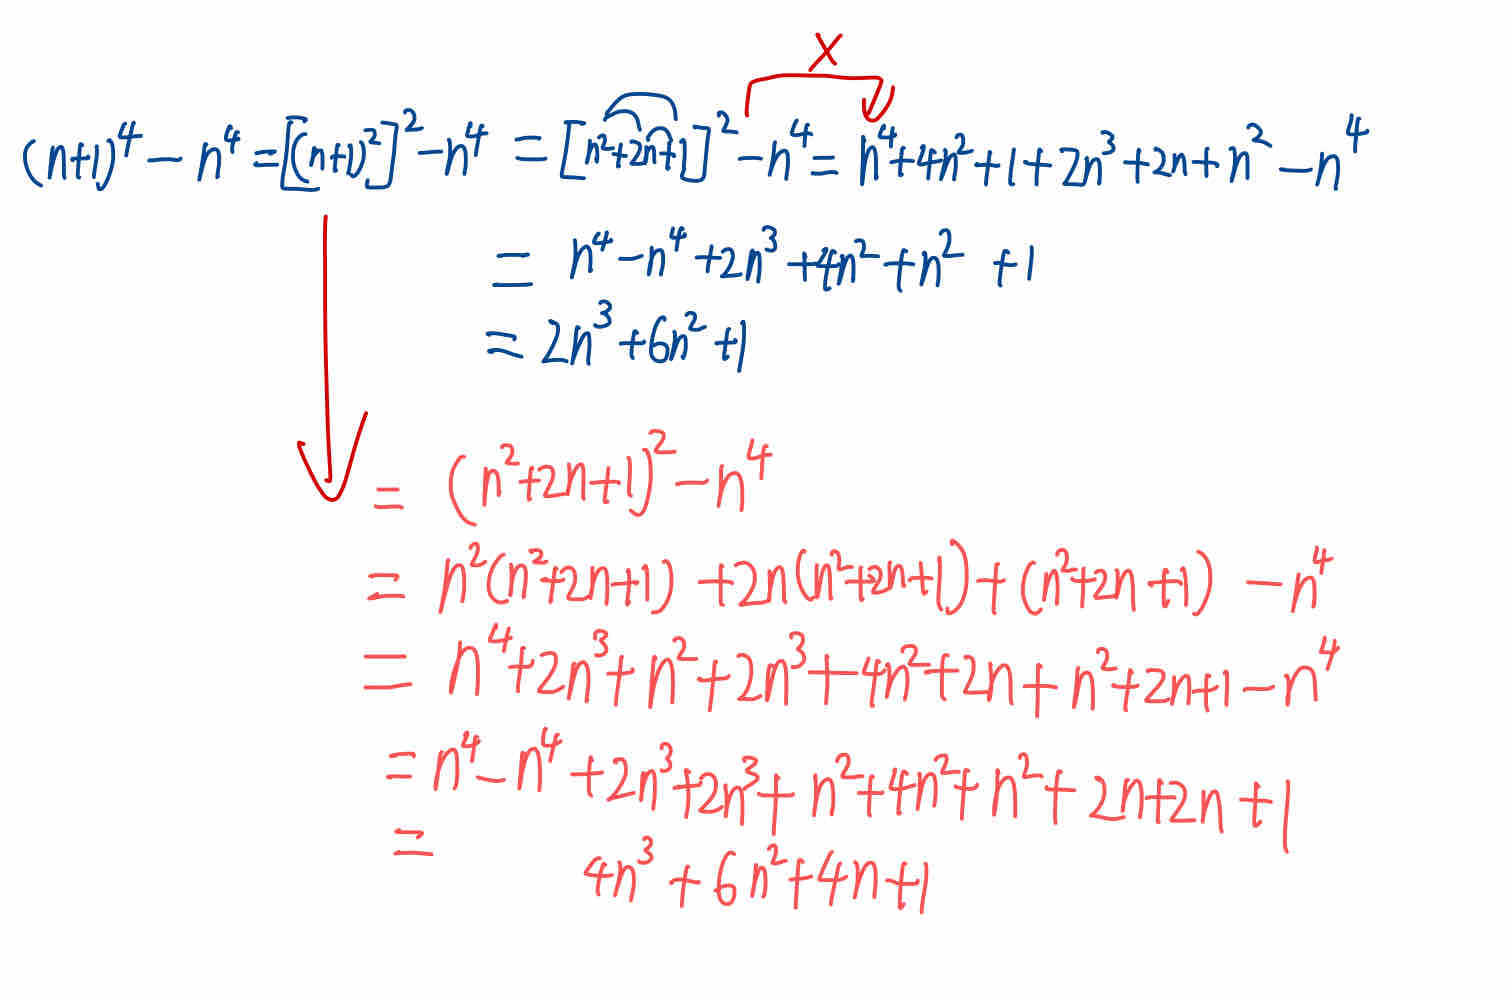 X
(n+1)⁴ − n⁴ = [(n+1)²]² − n⁴ = [n²+2n+1]² − n⁴ = n⁴+4n²+1+2n³+2n+n²−n⁴
= n⁴−n⁴+2n³+4n²+n² +1
= 2n³+6n²+1
= (n²+2n+1)²−n⁴
= n²(n²+2n+1) +2n(n²+2n+1)+(n²+2n+1) −n⁴
= n⁴+2n³+n²+2n³+4n²+2n+n²+2n+1−n⁴
= n⁴−n⁴+2n³+2n³+n²+4n²+n²+2n+2n+1
= 4n³+6n²+4n+1